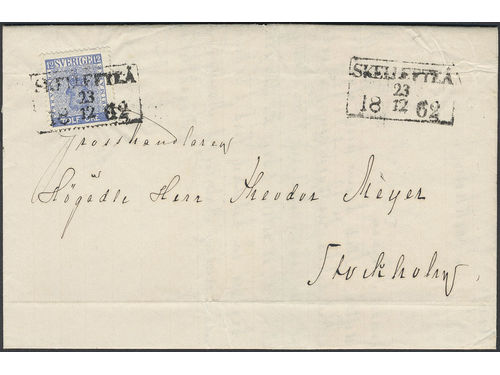 12 SVERIGE 12
SKELLEFTEÅ
23
18 12 62
TOLF ÖRE
SKELLEFTEÅ
23
18 12 62
Grosshandlaren
Högädle Herr Theodor Meyer
Stockholm.